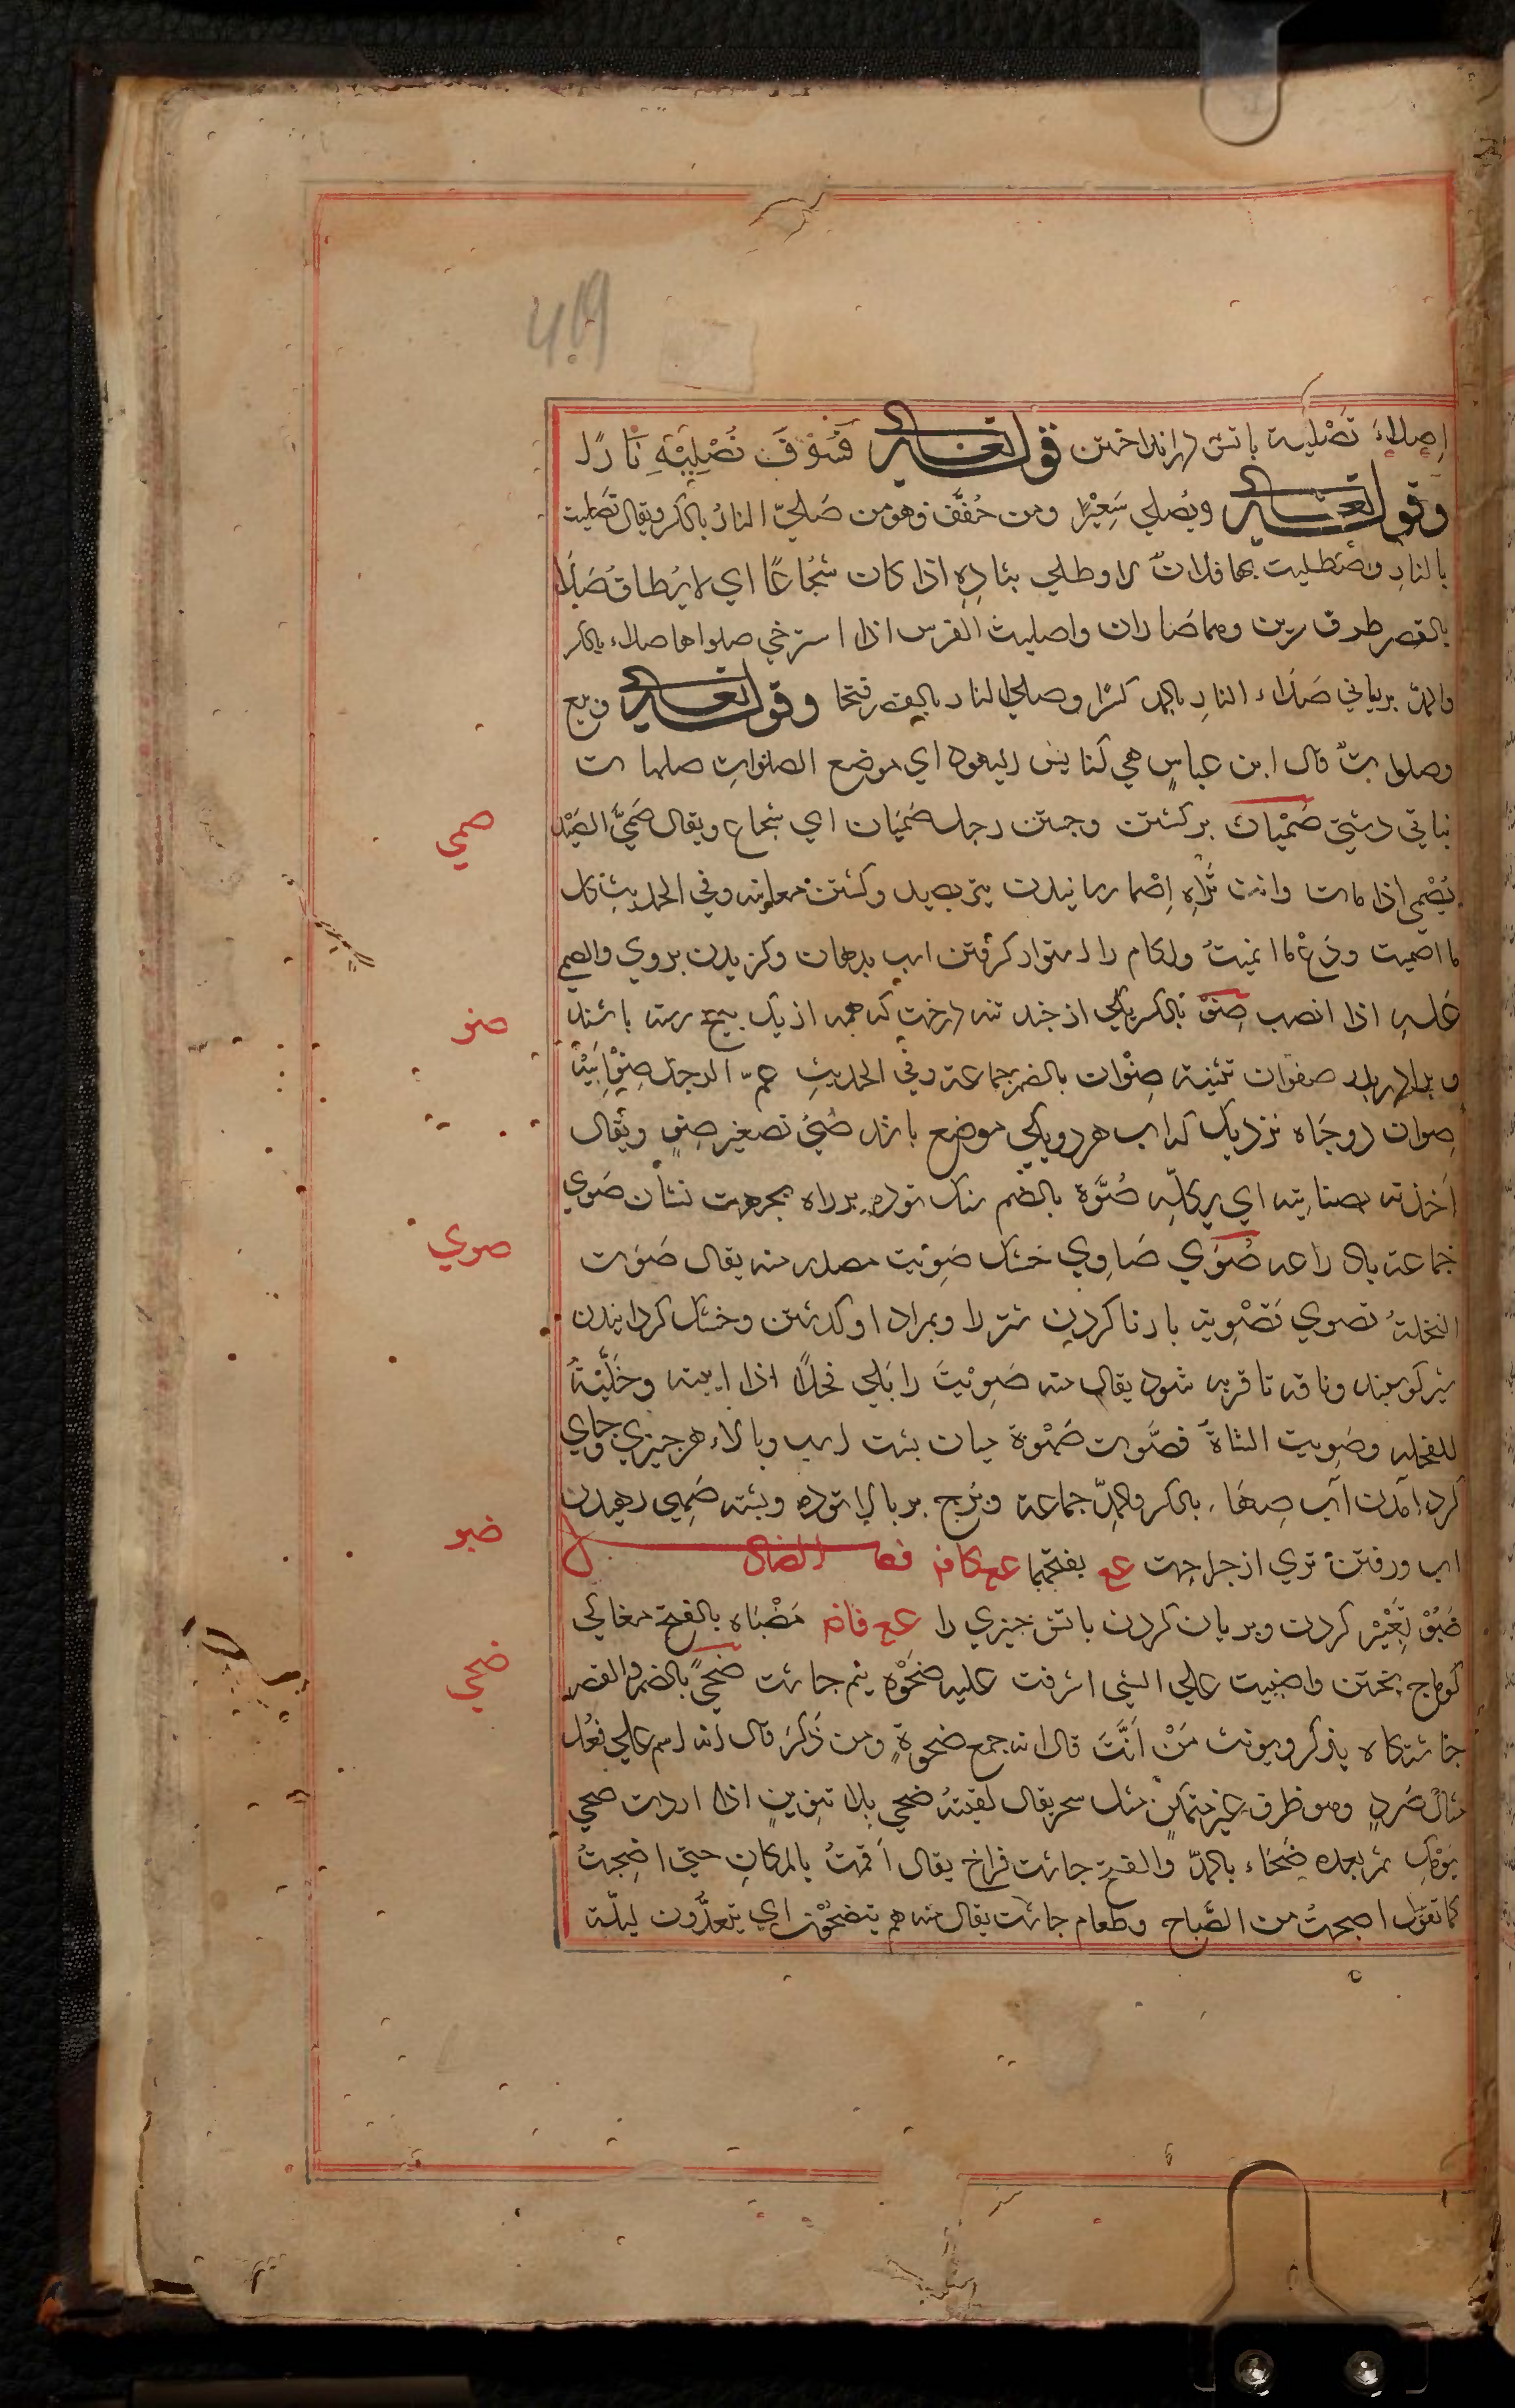 اِصلاءَ تَصْلية باتش درانداختن قوله تعالى فَسَوْفَ نُصْلِيْهِ نَارًا
وقوله تعالى ويُصلي سَعِيْرًا ومن خُفَّف وهومن صَلِيَ النارُ بالكسر ويقال تصَليت
بالنارِ واصْطليت بها فلانٌ لا وطلي بنادِهِ اذا كان شجُاعًا اي لا يُطاق صَلَا
بالقصر طرف سرين وهما صَلَوان واصليت الفرس اذا استرخي صلواها صلاء بالكسر
والمدّ برياني صَلَاء النارِ بالمد كسرًا وصلي النار بالقصر فتحا وقوله تعالى وبيع
وصلوات قال ابن عباسٍ هي كنايسُ اليهود اي موضع الصلوات
نباتي دشتي صَمَيان بركشتن وجستن رجل صَمَيَان اي شجاع ويقال صَمَيَ الصَيْد
يُصْمي اذا مات وانت تراه اِصْما رمانيدن تير بصيد وكشتن معاينه وفي الحديث كل
ما اصميت ودَعْ ما انميتُ ولكام را استوار كرفتن اسب بدهان وكزيدن بروي والصم
عَليهِ اذا انصب صِنْوٌ بالكسر يكي از چند تنه درخت كه همه از يك بيخ رسته باشند
و برادر پدر صنوان تثنيه صِنْوان بالضم جماعة وفي الحديثِ عمّ الرجل صِنْوابَيْه
صِوان دوچاه نزديك كه اب هر دو يكي موضع باشد صُنَيّ تصغير صِنوٍ ويُقال
اَخذته بصنايته اي بِكلّهِ صُوَّة بالضم سنك توده بر راه بجهت نشان صُوي
جماعة صَوَي صَاوِي خشك صَوِيَت مصدر منه يقال صَوَت
النخلةُ تصوي تَصْوِية بارنا كردن شتر را وبمراد اوكذشتن وخشك كردانيدن
شير كوسفند وناقه تا فربه شود يقال منه صَوِيْتَ رابلي فحلاً اذا ربيته وخَلَّيْتهُ
للفحله وصَويت الشاةَ فصَّوت صَهْوة ميان پشت اسب وبالاء هر چيزي وجاي
كرد آمدن آب صِهَاء بالكسر والمدِّ جماعة وبُرج بر بالا توده وپشته صَهِي رهيدن
اب ورفتن تري از جراحت عع بفتحهما عع كافر فصل الضاد
ضَبْوٌ تغَيْير كردن وبريان كردن باتش چيزي را عع فانم مَضْبَاه بالفتح مغاكي
كوماج پختن واضبيت علي الشي اشرفت عليه ضَحْوَة نيم چاشت ضُحيً بالضم والقصر
چاشتكاه يذكر ويونث مَنْ اَنَّثَ قال انه جمع ضحوةٍ ومن ذَكرَ قال انه اسم علي فُعَل
مثال صُرَدٍ وهو ظرف غير متمكن مثل سحر يقال لقيتهُ ضحي بلا تنوين اذا اردت ضحي
يومك ثم بعده ضَحَاء بالمدّ والفتح چاشت فراخ يقال اَقمتُ بالمكانِ حتي اضحيتُ
كما تقول اصبحتُ من الصَّباح وطعام چاشت يقال منه هم يتضحّون اي يتغدَّون ليلة
صمي
صنو
صوي
ضبو
ضحي